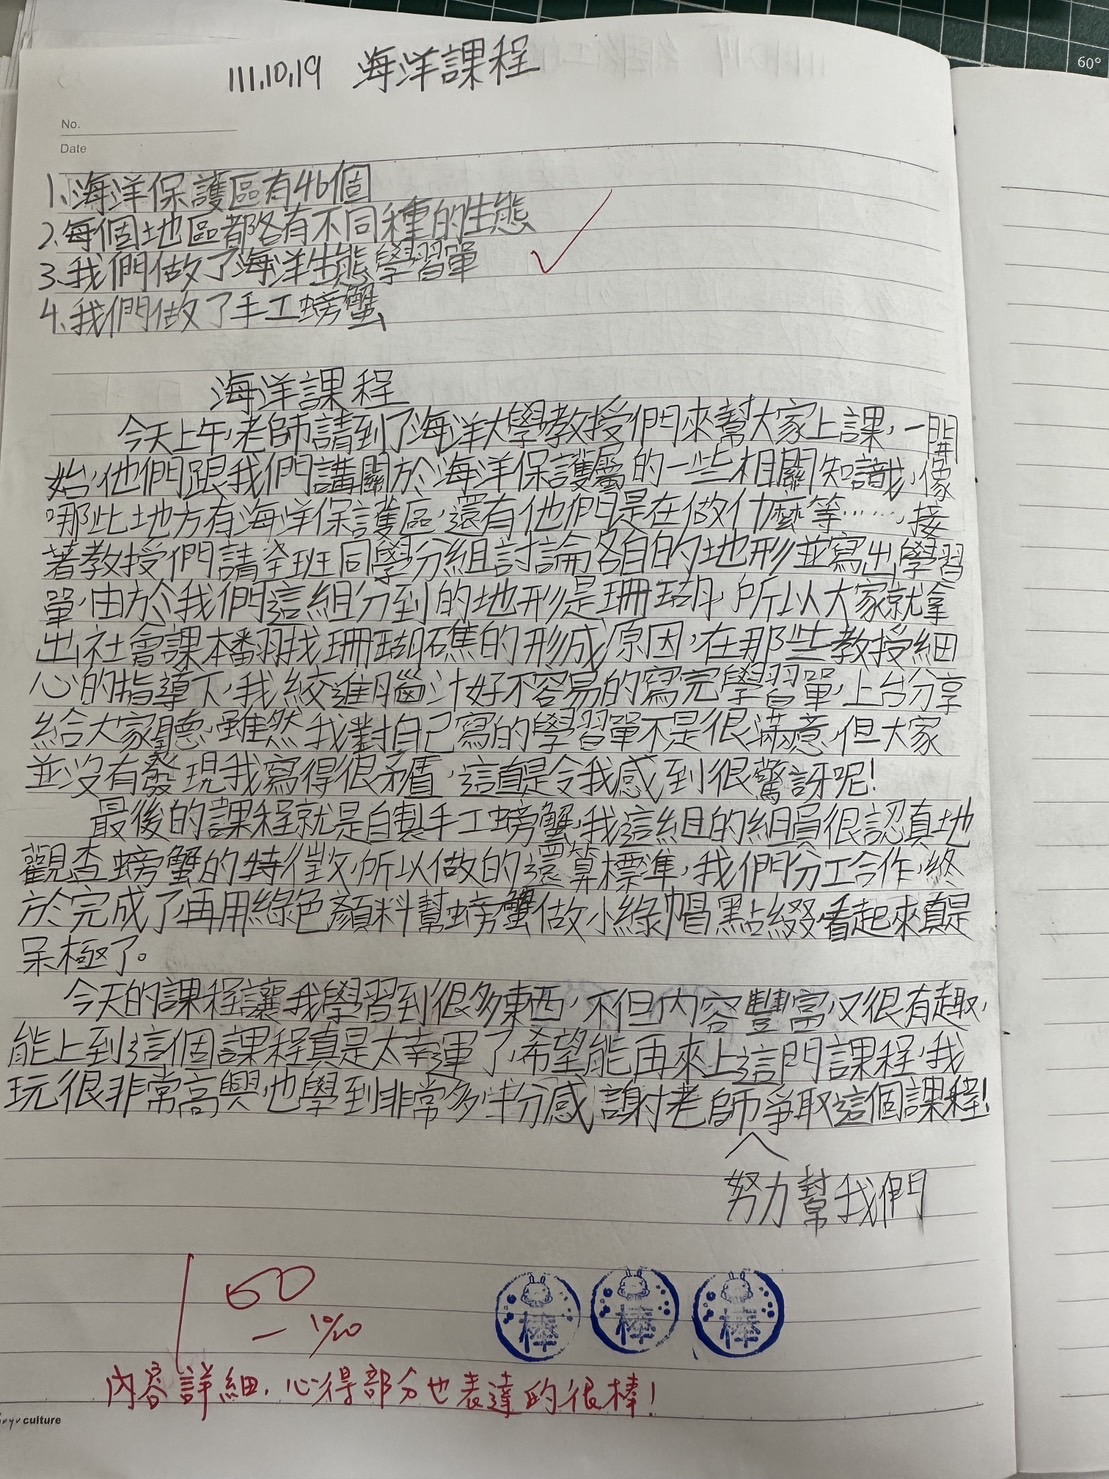 111.10.19 海洋課程
No.
Date
1.海洋保護區有46個
2.每個地區都各有不同種的生態
3.我們做了海洋生態學習單
4.我們做了手工螃蟹
海洋課程
今天上午,老師請到了海洋大學教授們來幫大家上課,一開
始,他們跟我們講關於海洋保護屬的一些相關知識,像
哪些地方有海洋保護區,還有他們是在做什麼等……,接
著教授們請全班同學分組討論各自的地形並寫出學習
單,由於我們這組分到的地形是珊瑚,所以大家就拿
出社會課本翻找珊瑚礁的形成原因,在那些教授細
心的指導下,我絞進腦汁好不容易的寫完學習單,上台分享
給大家聽,雖然我對自己寫的學習單不是很滿意,但大家
並沒有發現我寫得很矛盾,這真是令我感到很驚訝呢!
最後的課程就是自製手工螃蟹,我這組的組員很認真地
觀查螃蟹的特徵,所以做的還算標準,我們分工合作,終
於完成了,再用綠色顏料幫螃蟹做小綠帽點綴,看起來真是
呆極了。
今天的課程讓我學習到很多東西,不但內容豐富,又很有趣,
能上到這個課程真是太幸運了,希望能再來上這門課程,我
玩很非常高興,也學到非常多,十分感謝老師爭取這個課程!
努力幫我們
60
10/20
棒 棒 棒
內容詳細,心得部分也表達的很棒!
culture
60°